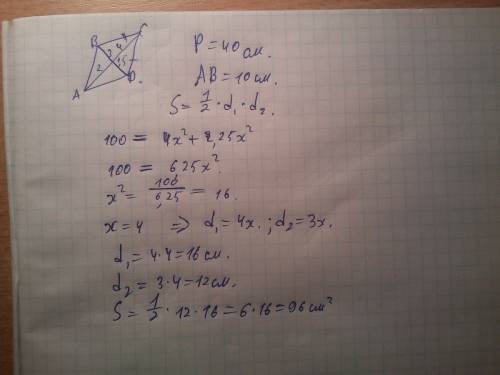 B C
3 4
2 1,5
A D
P = 40 см.
AB = 10 см.
S = 1/2 · d₁ · d₂.
100 = 4x² + 2,25x²
100 = 6,25x².
x² = 100/6,25 = 16.
x = 4 => d₁ = 4x. ; d₂ = 3x.
d₁ = 4·4 = 16 см.
d₂ = 3·4 = 12 см.
S = 1/2 · 12 · 16 = 6·16 = 96 см²